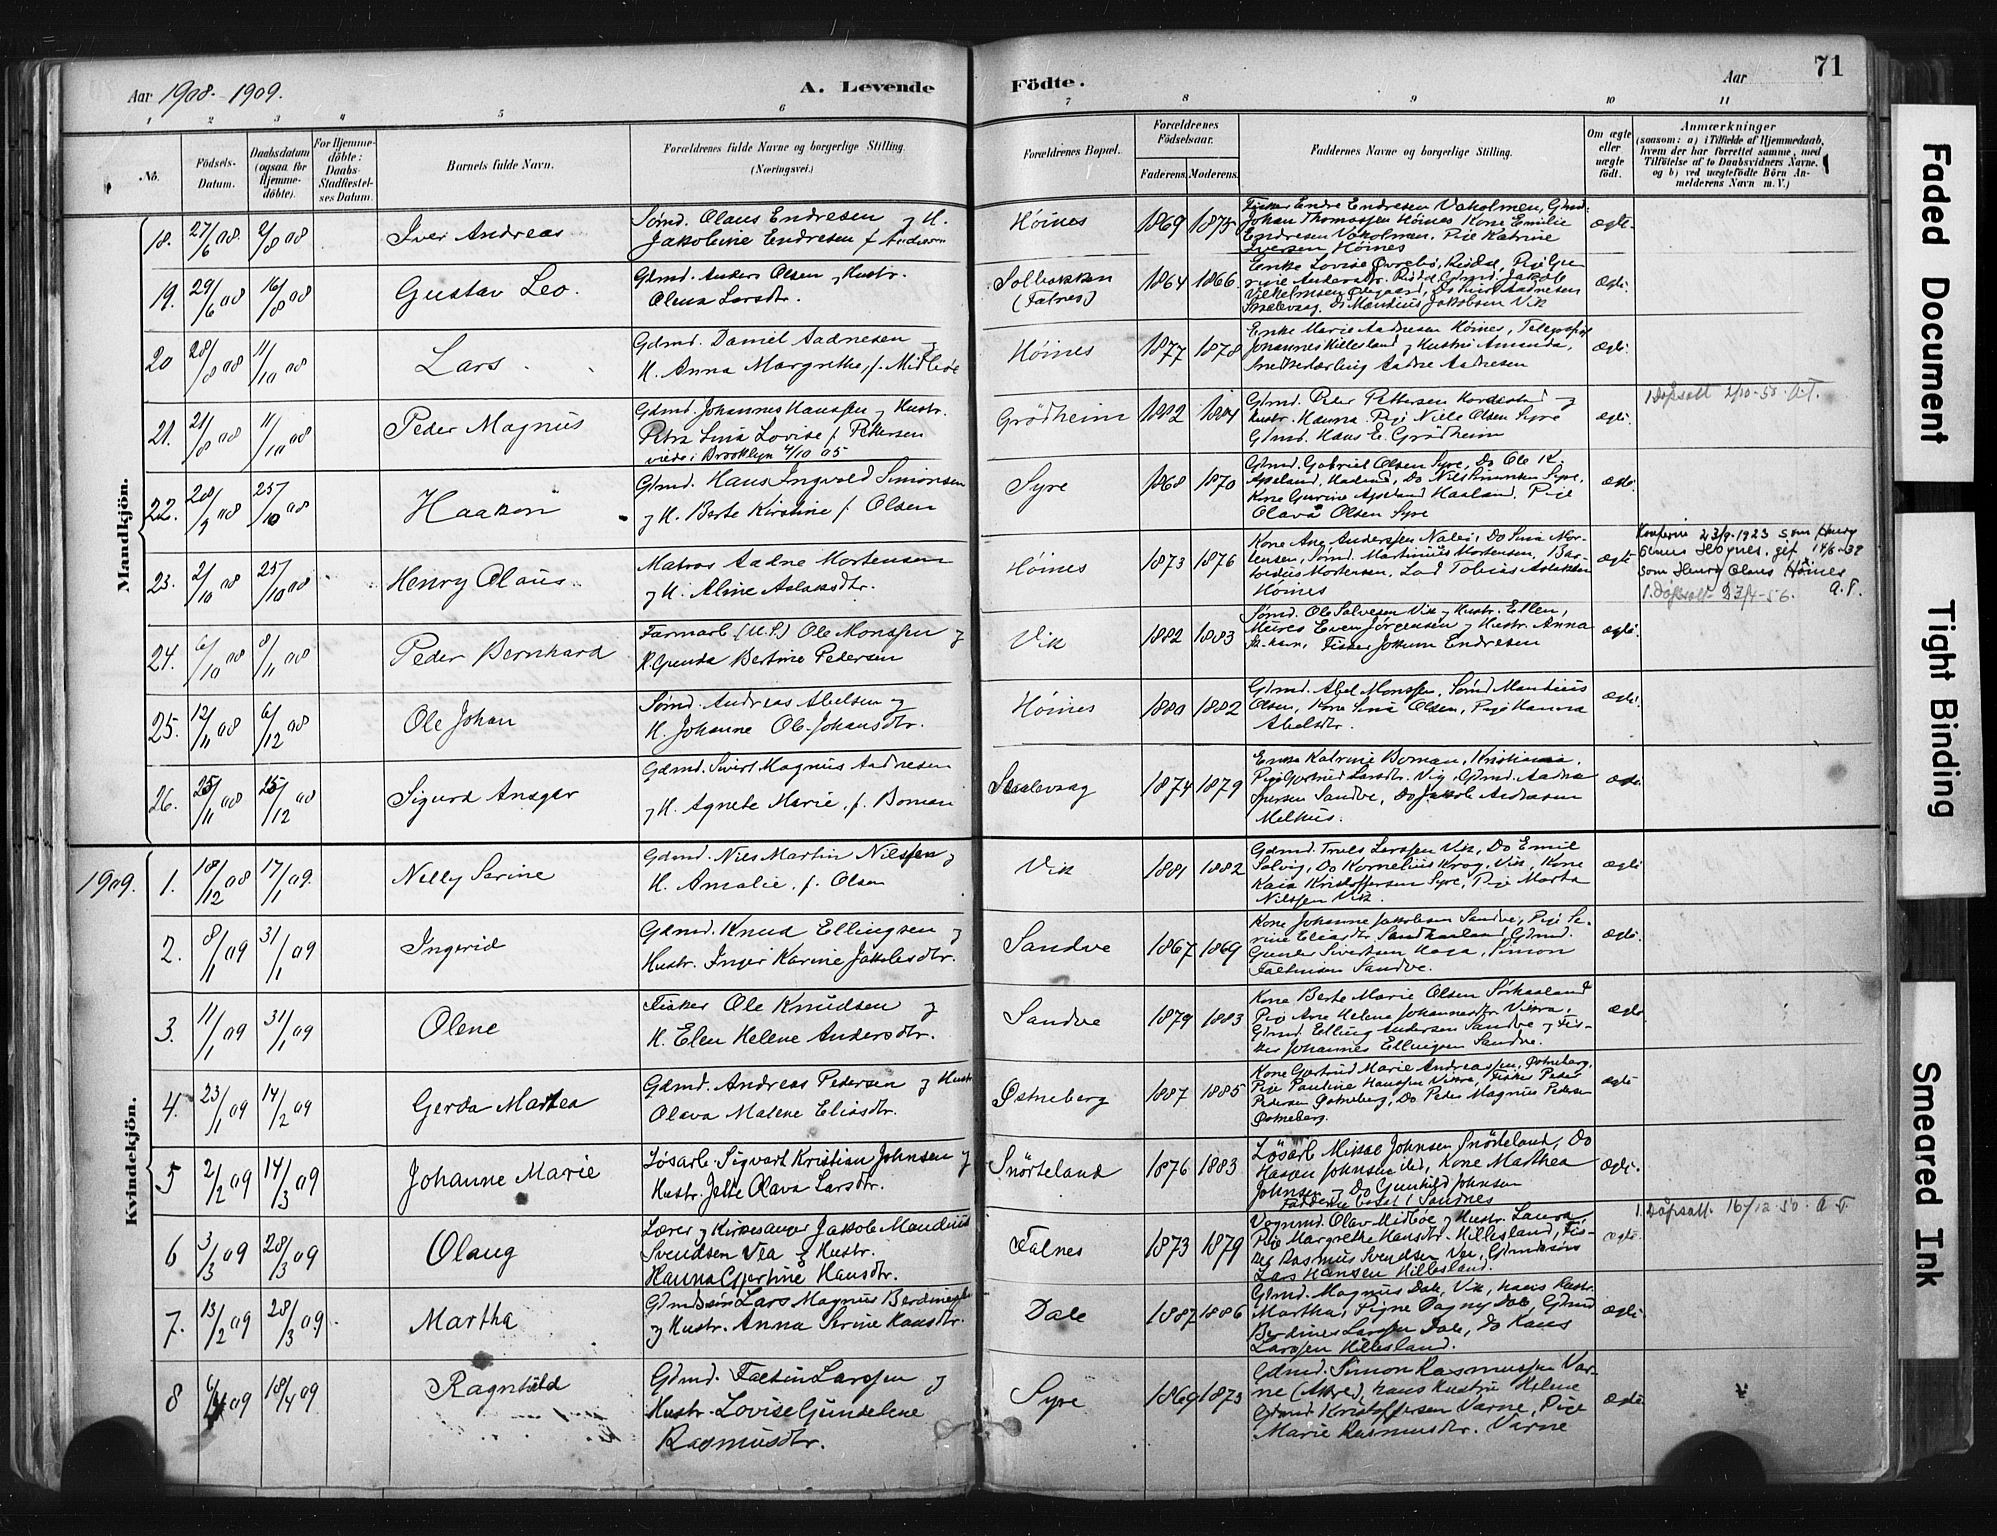 71
Aar 1908-1909. A. Levende Födte. Aar
1 2 3 4 5 6 7 8 9 10 11
No.
Födsels-
Datum.
Daabsdatum
(ogsaa for
Hjemme-
döbte).
For Hjemme-
döbte:
Daabs-
Stadfæstel-
ses Datum.
Barnets fulde Navn.
Forældrenes fulde Navne og borgerlige Stilling.
(Næringsvei.)
Forældrenes Bopæl.
Forældrenes
Födselsaar.
Faderens. Moderens.
Faddernes Navne og borgerlige Stilling.
Om ægte
eller
uægte
født.
Anmærkninger
(saasom: a) i Tilfælde af Hjemmedaab,
hvem der har forrettet samme, med
Tilföielse af to Daabsvidners Navne.
og b) ved uægtefödte Börn An-
melderens Navn m. V.)
Mandkjön.
18. 27/6 08 2/8 08 Iver Andreas
Sømd. Olaus Endresen og H.
Jakobine Endresen f.
Høines 1869 1875
Fisker Endre Endresen Vaholmen, Gbmd.
Johan Thomassen Høines Kone Emilie
Endresen Vaholmen. Pige Katrine
Iversen Høines
ægte.
19. 29/6 08 16/8 08 Gustav Leo.
Gbmd. Anders Olsen og Hustr.
Olena Larsdtr.
Solbakken
(Falnes)
1864 1866
Enke Lovise
Vilhelmsen
Skaalevaag, Do Mandius Jakobsen Vik
ægte.
20 28/8 08 11/10 08 Lars
Gbmd. Daniel Aadnesen og
H. Anna Margrethe, f. Midbøe
Høines 1877 1878
Enke Marie Aadnesen Høines,
Johannes Hillesland og Hustru Amanda,
Snedkerlærling Aadne Aadnesen
ægte.
21. 21/8 08 11/10 08 Peder Magnus
Gbmd. Johannes Hanssen og Hustr.
Petra Sina Lovise f. Pettersen
viede i Brooklyn 4/10 05
Grødheim 1882 1884
Gbmd. Peter Pettersen og
Hustr. Hanna. Pige Nille Olsen Syre
Gbmd. Hans E. Grødheim
ægte.
1 Dåpsatt 2/10-50. A.T.
22. 20/9 08 25/10 08 Haakon
Gbmd. Hans Ingvald Simonsen
og H. Berte Kirstine f. Olsen
Syre 1868 1870
Gbmd. Gabriel Olsen Syre, Do Ole K.
Apeland, Haaland, Do Nils Simonsen Syre,
Kone Gurine Apeland Haaland, Pige
Olava Olsen Syre
ægte.
23. 2/10 08 25/10 08 Henry Olaus
Matros Aadne Mortensen
og H. Aline Aslaksdtr.
Høines 1873 1876
Kone Ane Anderssen Nalei, Do Sina Mor-
tensen, Sømd. Martinius Mortensen,
Mortensen, Lod Tobias Aslaksen
Høines
ægte
Konfirm 23/9-1923 som Henry
Høynes, gift 14/6-32
som Henry Olaus Høines
1 Dåpsatt 23/4-56. A.T.
24. 6/10 08 8/11 08 Peder Bernhard
Farmarb. (U.S.) Ole Monssen og
H. Gunda Bertine Pedersen
Vik 1882 1883
Sømd. Ole Salvesen Vik og Hustr. Ellen,
Murer Even Jørgensen og Hustr. Anna
Fisker Jokum Endresen
ægte.
25. 12/11 08 6/12 08 Ole Johan
Sømd. Andreas Abelsen og
H. Johanne Ols. Johansdtr.
Høines 1880 1882
Gbmd. Abel Monssen, Sømd Mandius
Olsen, Kone Sina Olsen, Pige Hanna
Abelsdtr.
ægte.
26. 25/11 08 25/12 08 Sigurd Ansgar
Gbmd. Sivert Magnus Aadnesen
og H. Agnete Marie, f. Boman
Skaalevaag 1874 1879
Enke Katrine Boman, Kristiania,
Pige Gertrud Larsdtr. Vig, Gbmd. Aadne
Iversen Sandve, Do Jakob Andresen
Melhus.
ægte
1909.
Kvindekjön.
1. 18/12 08 17/1 09. Nelly Serine
Gbmd. Nils Martin Nilssen og
H. Amalie, f. Olsen
Vik 1881 1882
Gbmd. Truls Larssen Vik, Do Emil
Solvig, Do Kornelius Krog, Vik, Kone
Kaia Kristoffersen Syre, Pige Marta
Nilssen Vik.
ægte
2. 8/1 09 31/1 09 Ingerid
Gbmd. Knud Ellingsen og
Hustr. Inger Karine Jakobsdtr.
Sandve 1867 1869
Kone Johanne Jakobsen Sandve, Pige Se-
rine Eliasdtr. Sandhaaland Gbmd.
Gunder Sivertsen Haga, Simon
Faltinsen Sandve.
ægte.
3. 11/1 09 31/1 09 Olene
Fisker Ole Knudsen og
H. Elen Helene Andersdtr.
Sandve 1879 1883
Kone Berte Marie Olsen Sørhaaland
Pige Ane Helene Johannesdtr Vikra,
Gbmd. Elling Andersen Sandve og Fis-
ker Johannes Ellingsen Sandve.
ægte
4. 23/1 09 14/2 09 Gerda Martea
Gbmd. Andreas Pedersen og Hustr
Olava Malene Eliasdtr.
Østneberg 1887 1885
Kone Gertrud Marie Andreassen, Østneberg.
Pige Pauline Hanssen Vikra, Fisker Peder
Pedersen Østneberg, Do Peder Magnus Pedersen
Østneberg.
ægte
5 2/2 09 14/3 09 Johanne Marie
Løsarb. Sigvart Kristian Johnsen og
Hustr. Jette Olava Larsdtr.
Snørteland 1876 1883
Løsarb Mikal Johnsen Snørteland, Do
Haavn Johnsen ibd, Kone Marthea
Johnsen og Do Gunhild Johnsen
Fadderne bosat i Sandnes
ægte.
6 3/3 09 28/3 09 Olaug
Lærer og Kirkesanger Jakob Mandius
Svendsen Vea og Hustr.
Hanna Gjertine Hansdtr.
Falnes 1873 1879
Vognmd. Olav Midbøe og Hustr. Laura
Pige Margrethe Hansdtr. Hillesland, Fis-
ker Rasmus Svendsen Vea, Gbmdssøn
Lars Hansen Hillesland.
ægte.
1. Dåpsatt. 16/12-50. A.T.
7. 13/2 09 28/3 09 Martha
Gbmdssøn Lars Magnus
og Hustr. Anna Serine Hansdtr.
Dale 1887 1886
Gbmd. Magnus Dale, Vik, hans Hustr.
Martha, Pigne Dagny Dale, Gbmd
Berdines Larssen Dale, Do Hans
Larssen Hillesland.
ægte.
8 09 18/4 09 Ragnhild
Gbmd. Faltin Larssen og
Hustr. Lovise Gundelene
Rasmusdtr.
Syre 1869 1873
Gbmd. Simon Rasmussen Var-
ne (Akre), hans Hustru Helene
Gbmd Kristoffersen Varne, Pige
Marie Rasmusdtr. Varne
ægte
Faded Document
Tight Binding
Smeared Ink